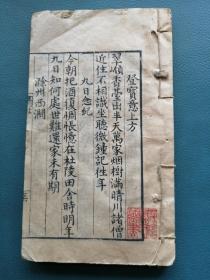 登寶意上方
翠嶺香臺出半天萬家烟樹滿晴川諸僧
近住不相識坐聽微鐘記往年
九日
今朝把酒復惆悵憶在杜陵田舍時明年
九日知何處世難還家未有期
滁州西澗